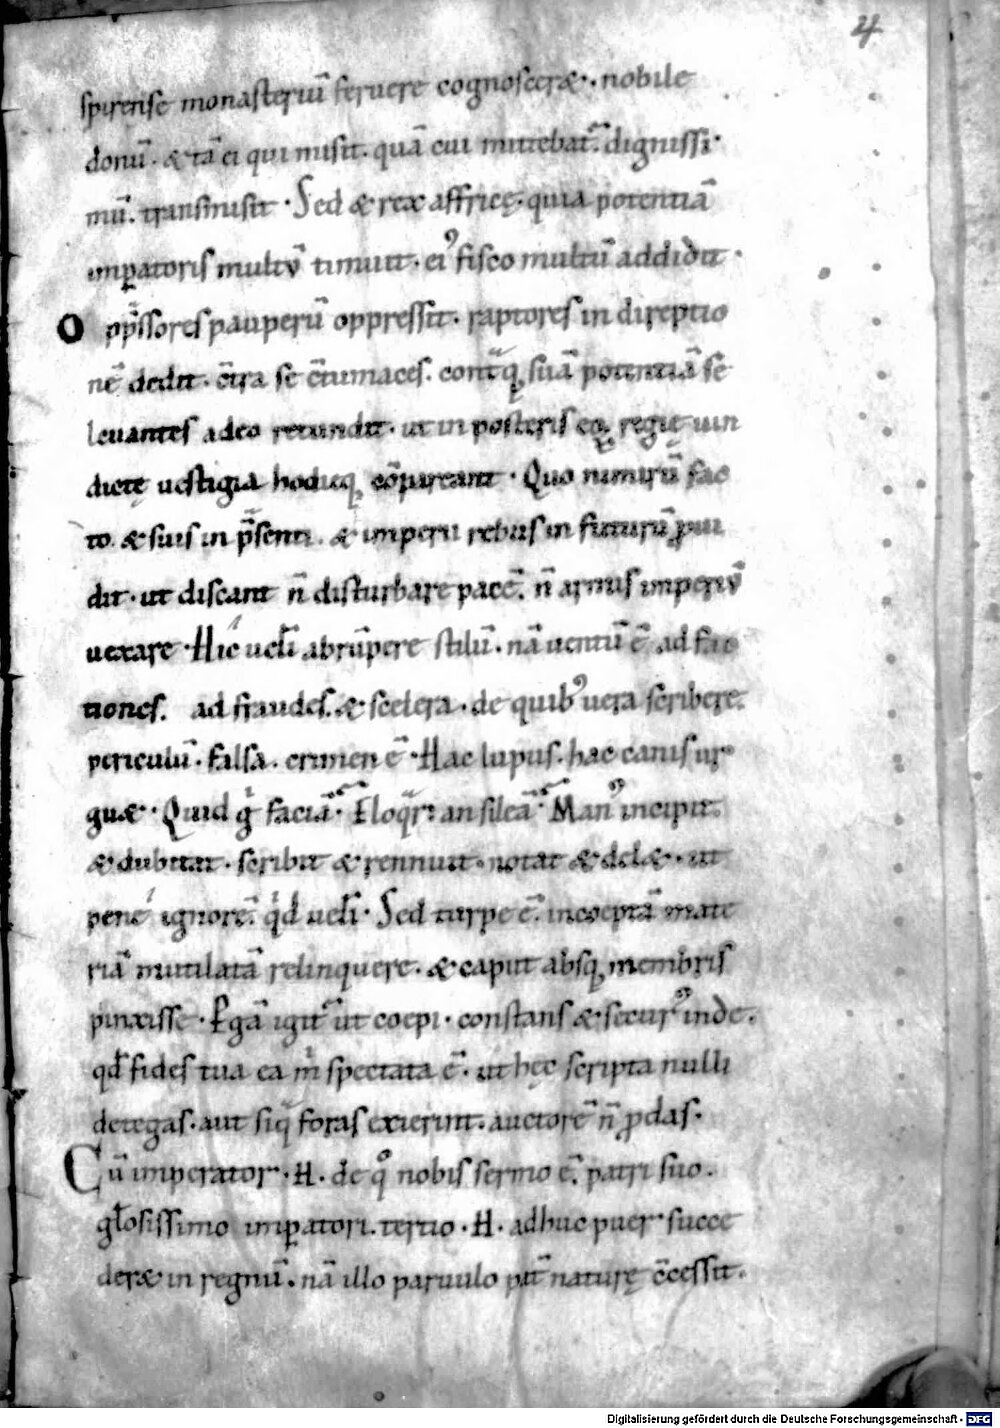 4
spirense monasteriū feruere cognoscer&. nobile
donū. & tā ei qui misit. quā cui mittebat̄. dignissi
mū. transmisit. Sed & rex affricę. quia potentiā
imꝑatoris multū timuit. ei᾿ fisco multū addidit.
Opp̄ssores pauperū oppressit. raptores in direptio
nē dedit. c̄tra se c̄tumaces. contᷓq; suā potentiā se
leuantes adeo retundit. ut in posteris eoꝝ regię uin
dictę uestigia hodieq; cōpareant. Quo nimirū fac
to. & suis in p̄senti. & imperii rebus in futurū ꝓui
dit. ut discant n̄ disturbare pacē. n̄ armis imperiū
uexare. Hic uelī abrūpere stilū. nā uentū ē ad fac
tiones. ad fraudes. & scelera. de quib᾿ uera scribere.
periculū. falsa. crimen ē. Hac lupus. hac canis ur
gu&. Quid gͦ faciā. Eloqᷓr: an sileā. Man᾿ incipit.
& dubitat. scribit & rennuit. notat & del&. ut
pene ignorē. qͥd uelī. Sed turpe ē. incoeptā mate
riā mutilatā relinquere. & caput absq; membris
pinxisse. Pgā igit̄ ut coepi. constans & secur᾿ inde.
qđ fides tua ea mͥ spectata ē. ut hęc scripta nulli
detegas. aut siqᷓ foras exierint. auctorē n̄ ꝓdas.
Cū imperator. H. de qͦ nobis sermo ē. patri suo.
gl̄osissimo imꝑatori. tertio. H. adhuc puer succe
der& in regnū. nā illo paruulo pat̄ naturę c̄cessit.
Digitalisierung gefördert durch die Deutsche Forschungsgemeinschaft - DFG